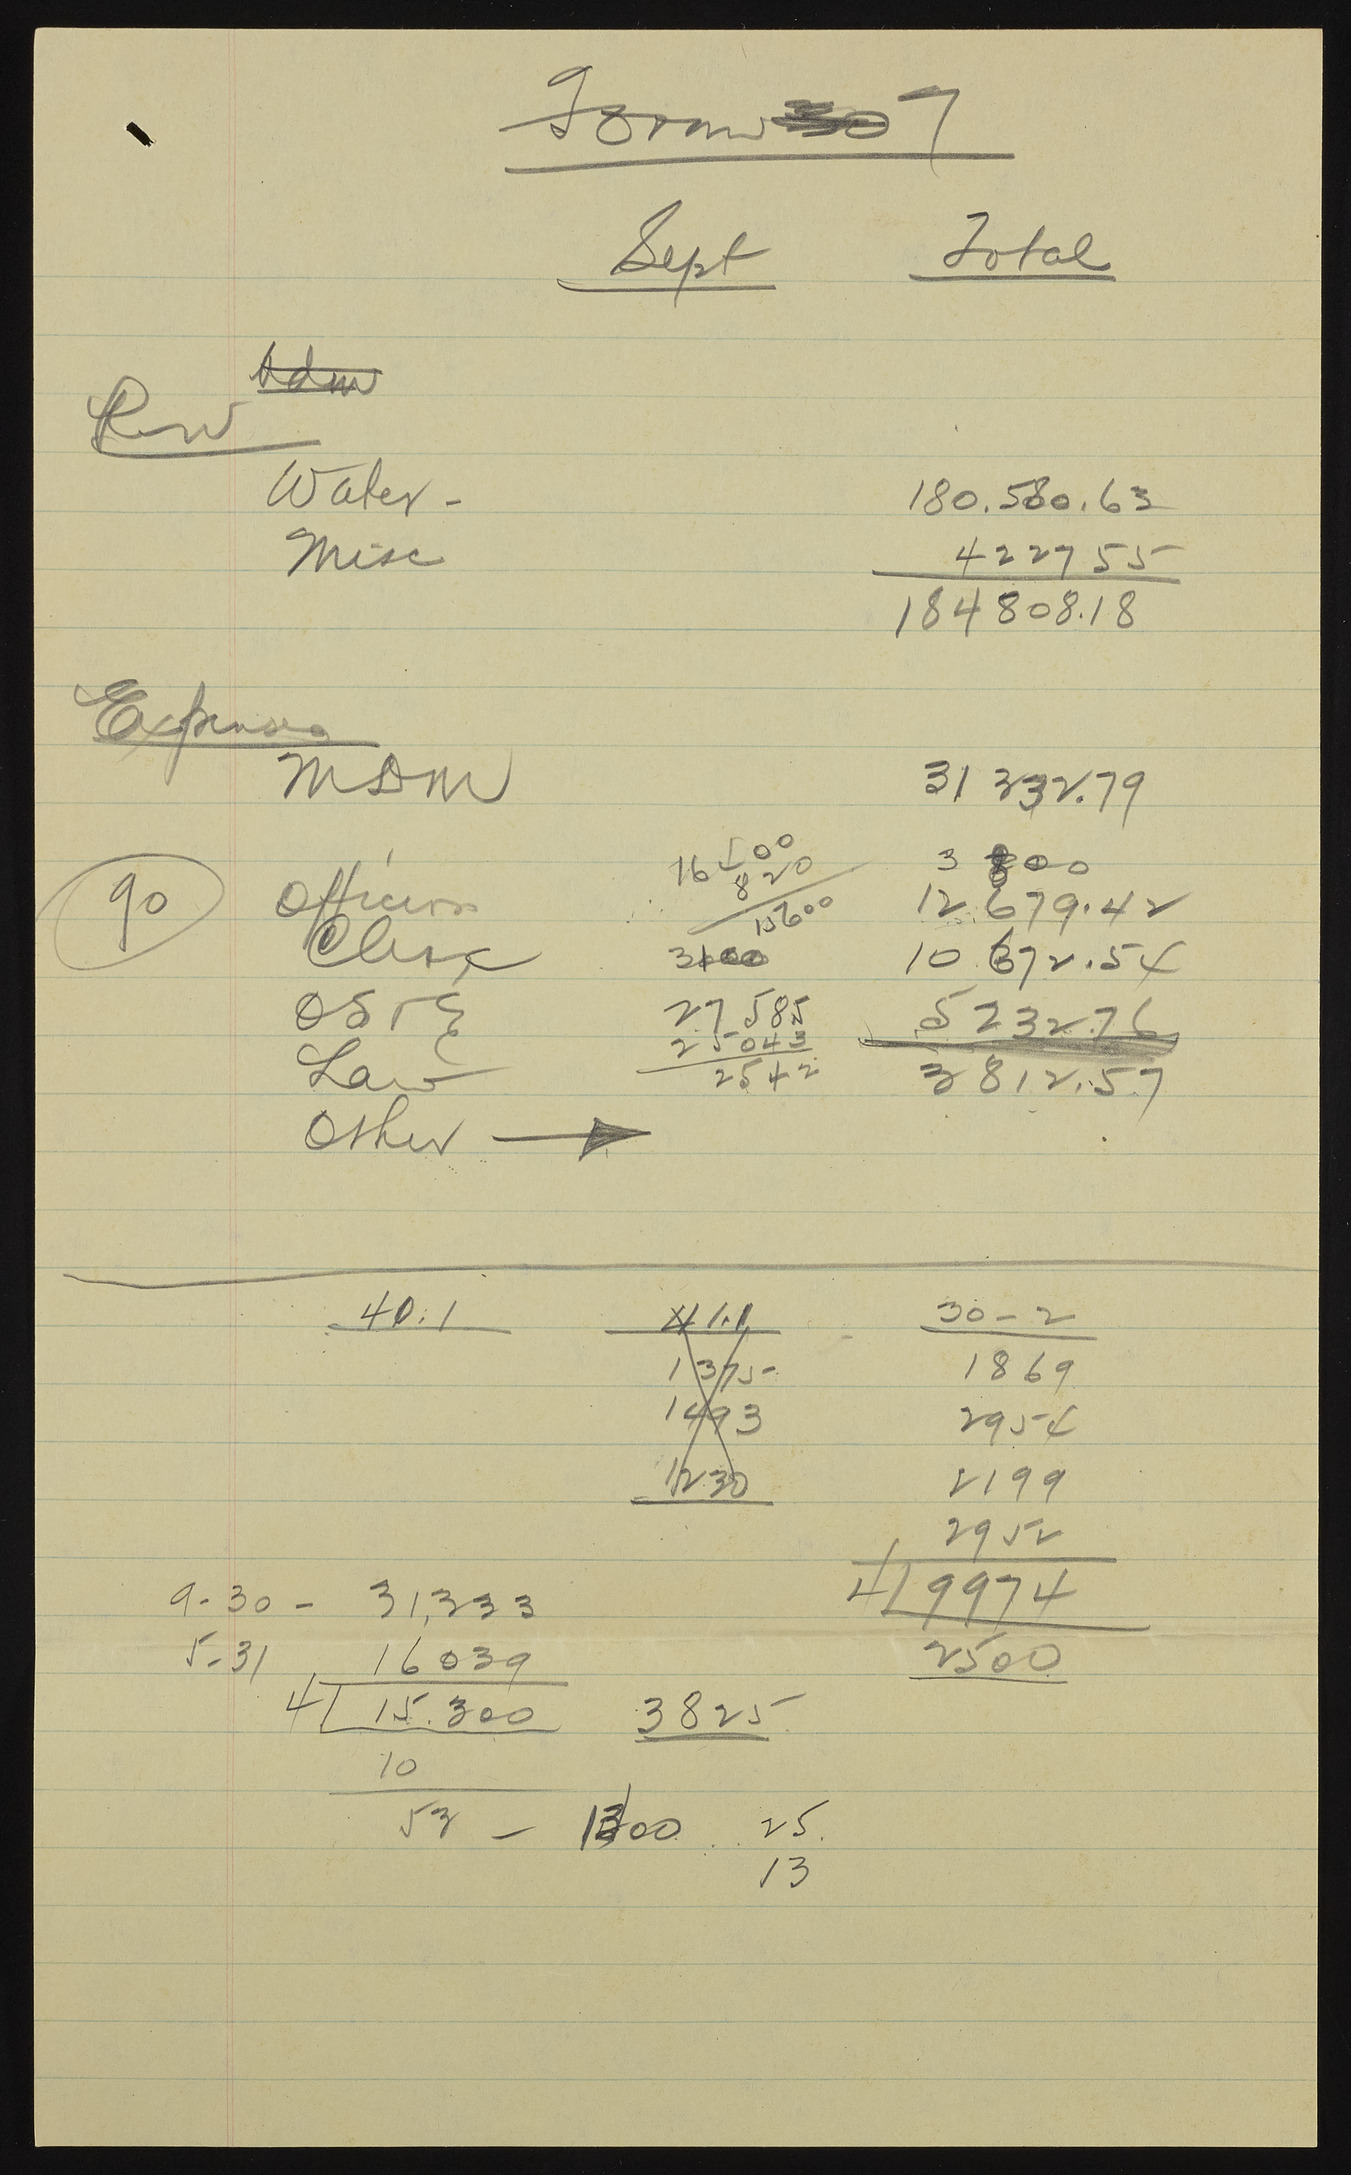 Form 7
Sept Total
Adm
Rev
Water - 180.580.63
Misc 4227 55
184808.18
Expenses
M D M 31 332.79
16500 3 800
820
90 Officers 12.679.42
15600
Clerk 3100 10 672.54
OS + E 27 585 5232.76
25043
Law 2542 3812.57
Other
40.1 41.1 30-2
1375 1869
1493 2954
1230 2199
2952
4 9974
9-30 - 31,333
2500
5-31 16039
4 15.300 3825
10
53 - 1300 25.
13